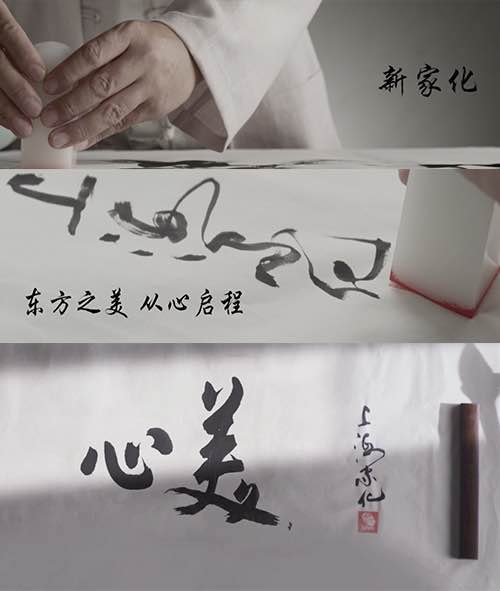 新家化
东方之美 从心启程
心美
上海家化